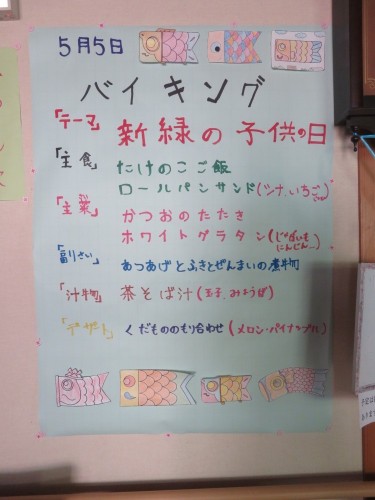 5月5日
バイキング
「テーマ」 新緑の子供の日
「主食」 たけのこご飯
ロールパンサンド(ツナ、いちごジャム)
「主菜」 かつおのたたき
ホワイトグラタン(じゃがいも にんじん…)
「副さい」 あつあげとふきとぜんまいの煮物
「汁物」 茶そば汁(玉子、みょうが)
「デザート」 くだもののもり合わせ(メロン・パイナップル)